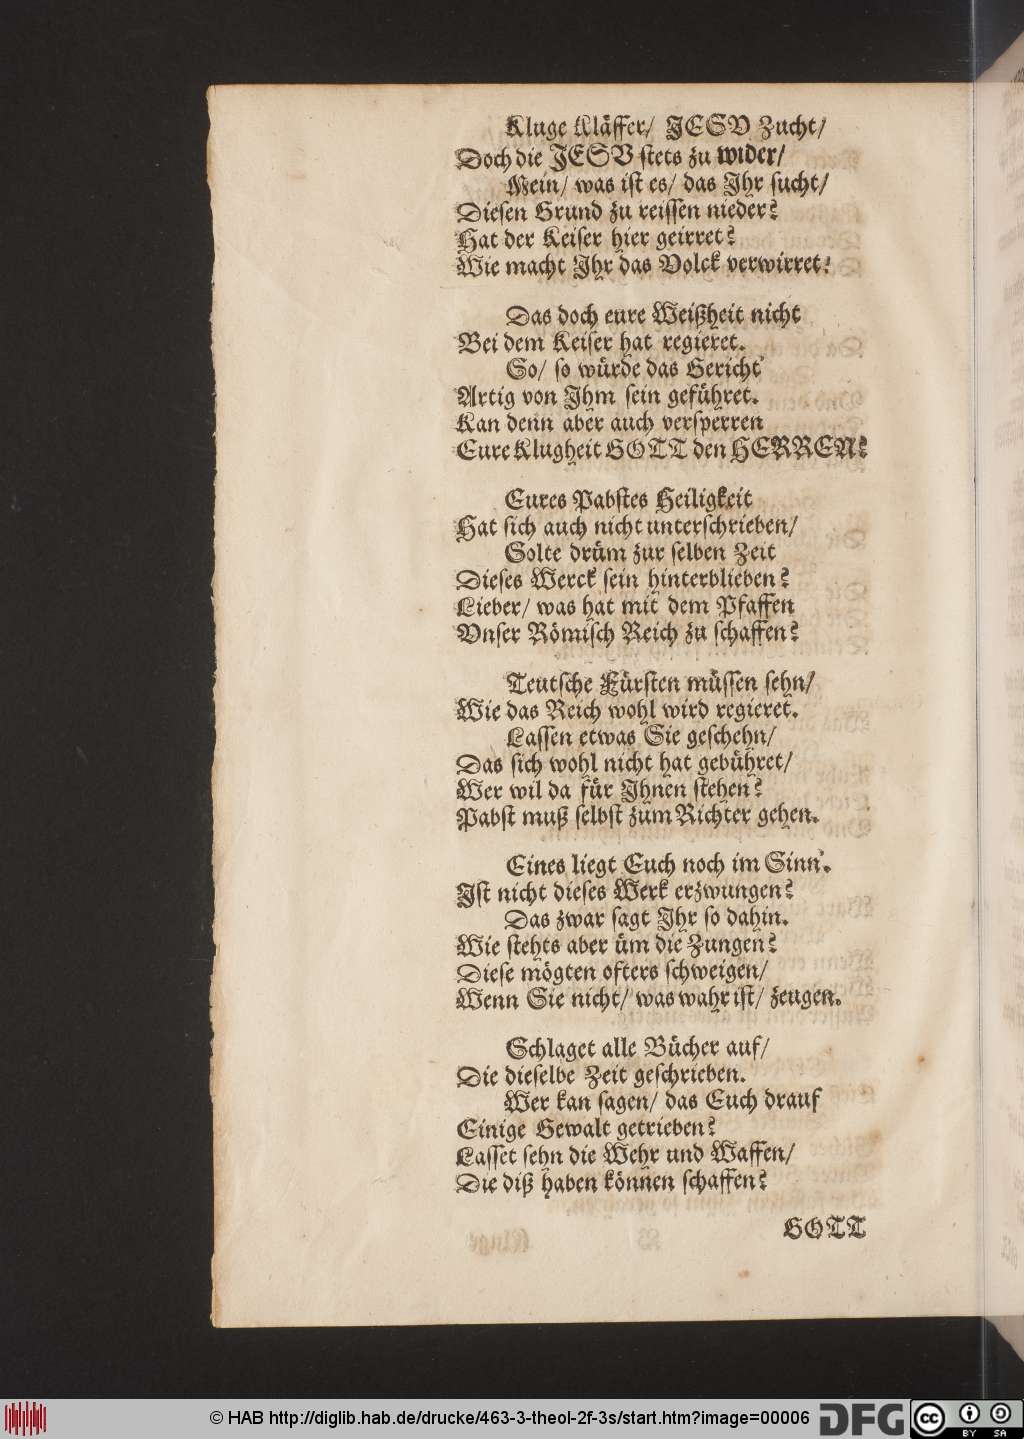 Kluge Kläffer/ JESV Zucht/
Doch die JESV stets zu wider/
Mein/ was ist es/ das Jhr sucht/
Diesen Grund zu reissen nieder?
Hat der Keiser hier geirret?
Wie macht Jhr das Volck verwirret!
Das doch eure Weißheit nicht
Bei dem Keiser hat regieret.
So/ so würde das Gericht
Artig von Jhm sein geführet.
Kan denn aber auch versperren
Eure Klugheit GOTT den HERREN?
Eures Pabstes Heiligkeit
Hat sich auch nicht unterschrieben/
Solte drüm zur selben Zeit
Dieses Werck sein hinterblieben?
Lieber/ was hat mit dem Pfaffen
Vnser Römisch Reich zu schaffen?
Teutsche Fürsten müssen sehn/
Wie das Reich wohl wird regieret.
Lassen etwas Sie geschehn/
Das sich wohl nicht hat gebühret/
Wer wil da für Jhnen stehen?
Pabst muß selbst zum Richter gehen.
Eines liegt Euch noch im Sinn.
Jst nicht dieses Werk erzwungen?
Das zwar sagt Jhr so dahin.
Wie stehts aber üm die Zungen?
Diese mögten ofters schweigen/
Wenn Sie nicht/ was wahr ist/ zeugen.
Schlaget alle Bücher auf/
Die dieselbe Zeit geschrieben.
Wer kan sagen/ das Euch drauf
Einige Gewalt getrieben?
Lasset sehn die Wehr und Waffen/
Die diß haben können schaffen?
GOTT
© HAB http://diglib.hab.de/drucke/463-3-theol-2f-3s/start.htm?image=00006
DFG
cc BY SA